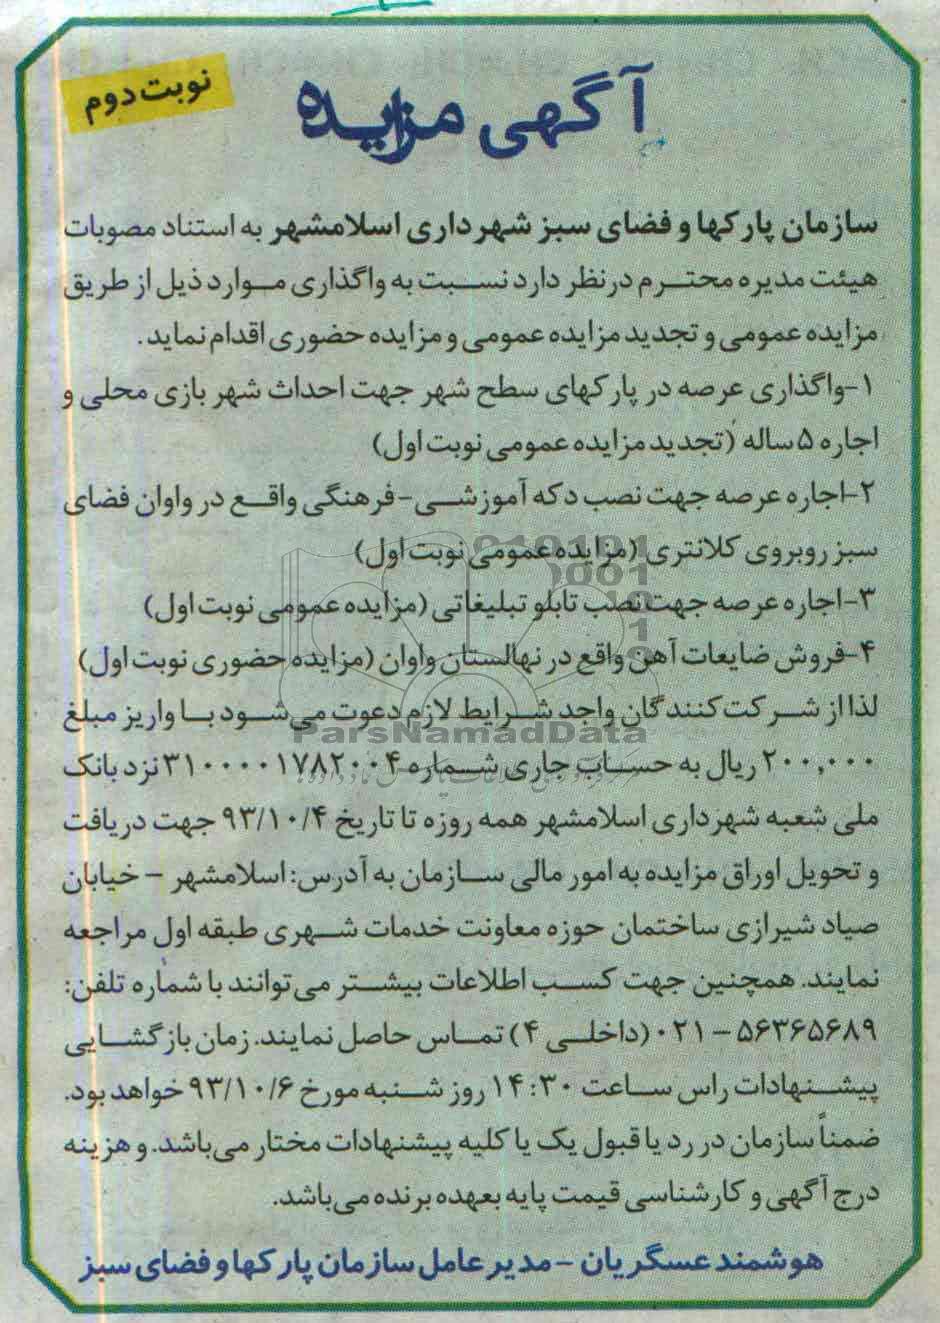 نوبت دوم
آگهی مزایده
سازمان پارکها و فضای سبز شهرداری اسلامشهر به استناد مصوبات
هیئت مدیره محترم درنظر دارد نسبت به واگذاری موارد ذیل از طریق
مزایده عمومی و تجدید مزایده عمومی و مزایده حضوری اقدام نماید.
۱-واگذاری عرصه در پارکهای سطح شهر جهت احداث شهر بازی محلی و
اجاره ۵ ساله (تجدید مزایده عمومی نوبت اول)
۲-اجاره عرصه جهت نصب دکه آموزشی-فرهنگی واقع در واوان فضای
سبز روبروی کلانتری (مزایده عمومی نوبت اول)
۳-اجاره عرصه جهت نصب تابلو تبلیغاتی (مزایده عمومی نوبت اول)
۴-فروش ضایعات آهن واقع در نهالستان واوان (مزایده حضوری نوبت اول)
لذا از شرکت کنندگان واجد شرایط لازم دعوت می‌شود با واریز مبلغ
ParsNamadData
۲۰۰,۰۰۰ ریال به حساب جاری شماره ۳۱۰۰۰۰۱۷۸۲۰۰۴ نزد بانک
ملی شعبه شهرداری اسلامشهر همه روزه تا تاریخ ۹۳/۱۰/۴ جهت دریافت
و تحویل اوراق مزایده به امور مالی سازمان به آدرس: اسلامشهر – خیابان
صیاد شیرازی ساختمان حوزه معاونت خدمات شهری طبقه اول مراجعه
نمایند. همچنین جهت کسب اطلاعات بیشتر می‌توانند با شماره تلفن:
۵۶۳۶۵۶۸۹ – ۰۲۱ (داخلی ۴) تماس حاصل نمایند. زمان بازگشایی
پیشنهادات راس ساعت ۱۴:۳۰ روز شنبه مورخ ۹۳/۱۰/۶ خواهد بود.
ضمناً سازمان در رد یا قبول یک یا کلیه پیشنهادات مختار می‌باشد. و هزینه
درج آگهی و کارشناسی قیمت پایه بعهده برنده می‌باشد.
هوشمند عسگریان – مدیر عامل سازمان پارکها و فضای سبز